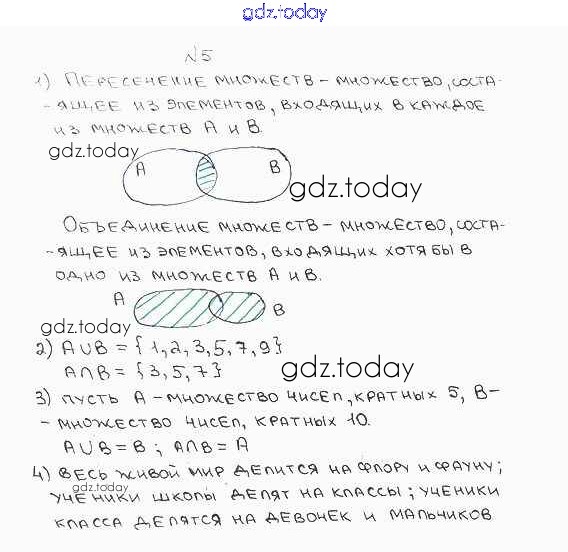 gdz.today
№5
1) Пересечение множеств – множество, соста-
-ящее из элементов, входящих в каждое
из множеств А и В.
gdz.today
А В
gdz.today
Объединение множеств – множество, соста-
-ящее из элементов, входящих хотя бы в
одно из множеств А и В.
А В
gdz.today
2) A∪B = {1,2,3,5,7,9}
A∩B = {3,5,7}
gdz.today
3) Пусть А – множество чисел, кратных 5, В-
- множество чисел, кратных 10.
A∪B = B ; A∩B = A
4) Весь живой мир делится на флору и фауну;
gdz.today
ученики школы делят на классы; ученики
класса делятся на девочек и мальчиков